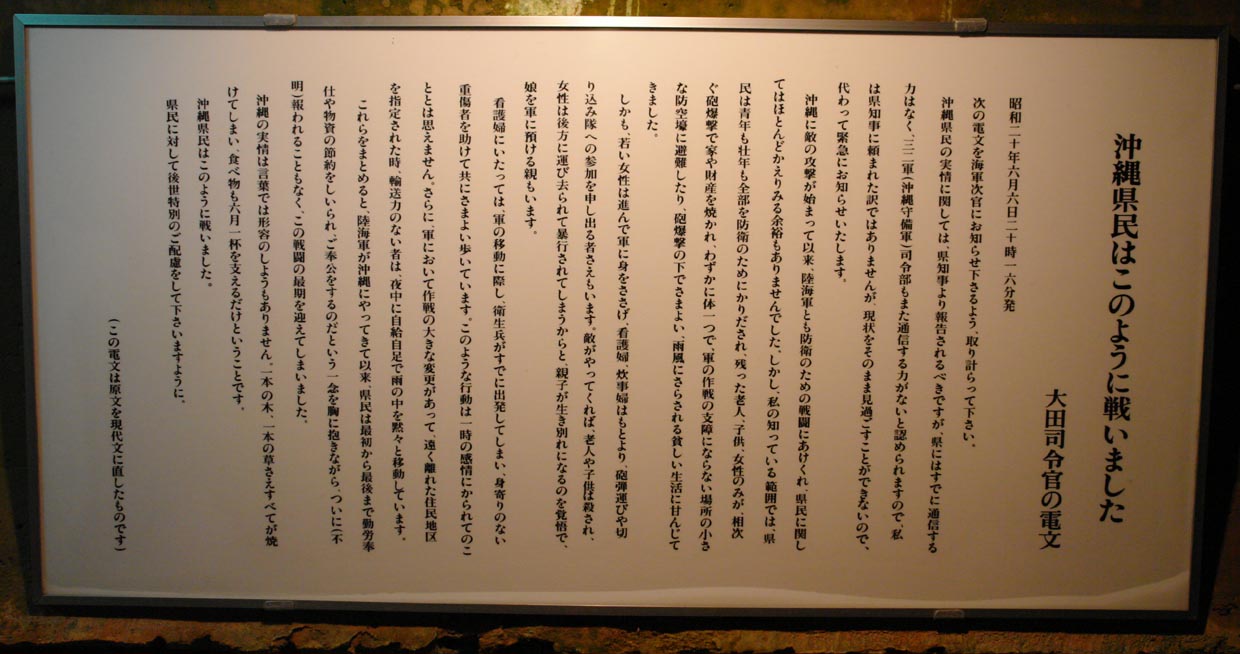 沖縄県民はこのように戦いました
大田司令官の電文
昭和二十年六月六日二十時一六分発
次の電文を海軍次官にお知らせ下さるよう、取り計らって下さい。
沖縄県民の実情に関しては、県知事より報告されるべきですが、県にはすでに通信する
力はなく、三二軍(沖縄守備軍)司令部もまた通信する力がないと認められますので、私
は県知事に頼まれた訳ではありませんが、現状をそのまま見過ごすことができないので、
代わって緊急にお知らせいたします。
沖縄に敵の攻撃が始まって以来、陸海軍とも防衛のための戦闘にあけくれ、県民に関し
てはほとんどかえりみる余裕もありませんでした。しかし、私の知っている範囲では、県
民は青年も壮年も全部を防衛のためにかりだされ、残った老人、子供、女性のみが、相次
ぐ砲爆撃で家や財産を焼かれ、わずかに体一つで、軍の作戦の支障にならない場所の小さ
な防空壕に避難したり、砲爆撃の下でさまよい、雨風にさらされる貧しい生活に甘んじて
きました。
しかも、若い女性は進んで軍に身をささげ、看護婦、炊事婦はもとより、砲弾運びや切
り込み隊への参加を申し出る者さえもいます。敵がやってくれば、老人や子供は殺され、
女性は後方に運び去られて暴行されてしまうからと、親子が生き別れになるのを覚悟で、
娘を軍に預ける親もいます。
看護婦にいたっては、軍の移動に際し、衛生兵がすでに出発してしまい、身寄りのない
重傷者を助けて共にさまよい歩いています。このような行動は一時の感情にかられてのこ
ととは思えません。さらに、軍において作戦の大きな変更があって、遠く離れた住民地区
を指定された時、輸送力のない者は、夜中に自給自足で雨の中を黙々と移動しています。
これらをまとめると、陸海軍が沖縄にやってきて以来、県民は最初から最後まで勤労奉
仕や物資の節約をしいられ、ご奉公をするのだという一念を胸に抱きながら、ついに(不
明)報われることもなく、この戦闘の最期を迎えてしまいました。
沖縄の実情は言葉では形容のしようもありません。一本の木、一本の草さえすべてが焼
けてしまい、食べ物も六月一杯を支えるだけということです。
沖縄県民はこのように戦いました。
県民に対して後世特別のご配慮をして下さいますように。
(この電文は原文を現代文に直したものです)